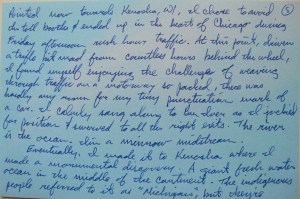 Pointed now towards Kenosha, WI, I chose to avoid ⑤
the toll booths & ended up in the heart of Chicago during
Friday afternoon rush hours traffic. At this point, driven
a triple bit mad from countless hours behind the wheel,
I found myself enjoying the challenges of weaving
through traffic on a motorway so packed, there was
hardly any room for my tiny punctuation mark of
a car. I calmly sang along to the doors as I jockied
for position & swerved to all the right exits. The river
is the ocean; I'm a minnow midstream.
Eventually, I made it to Kenosha where I
made a monumental discovery. A giant fresh water
ocean in the middle of the Continent. The indigenous
people referred to it as "Michigan", but